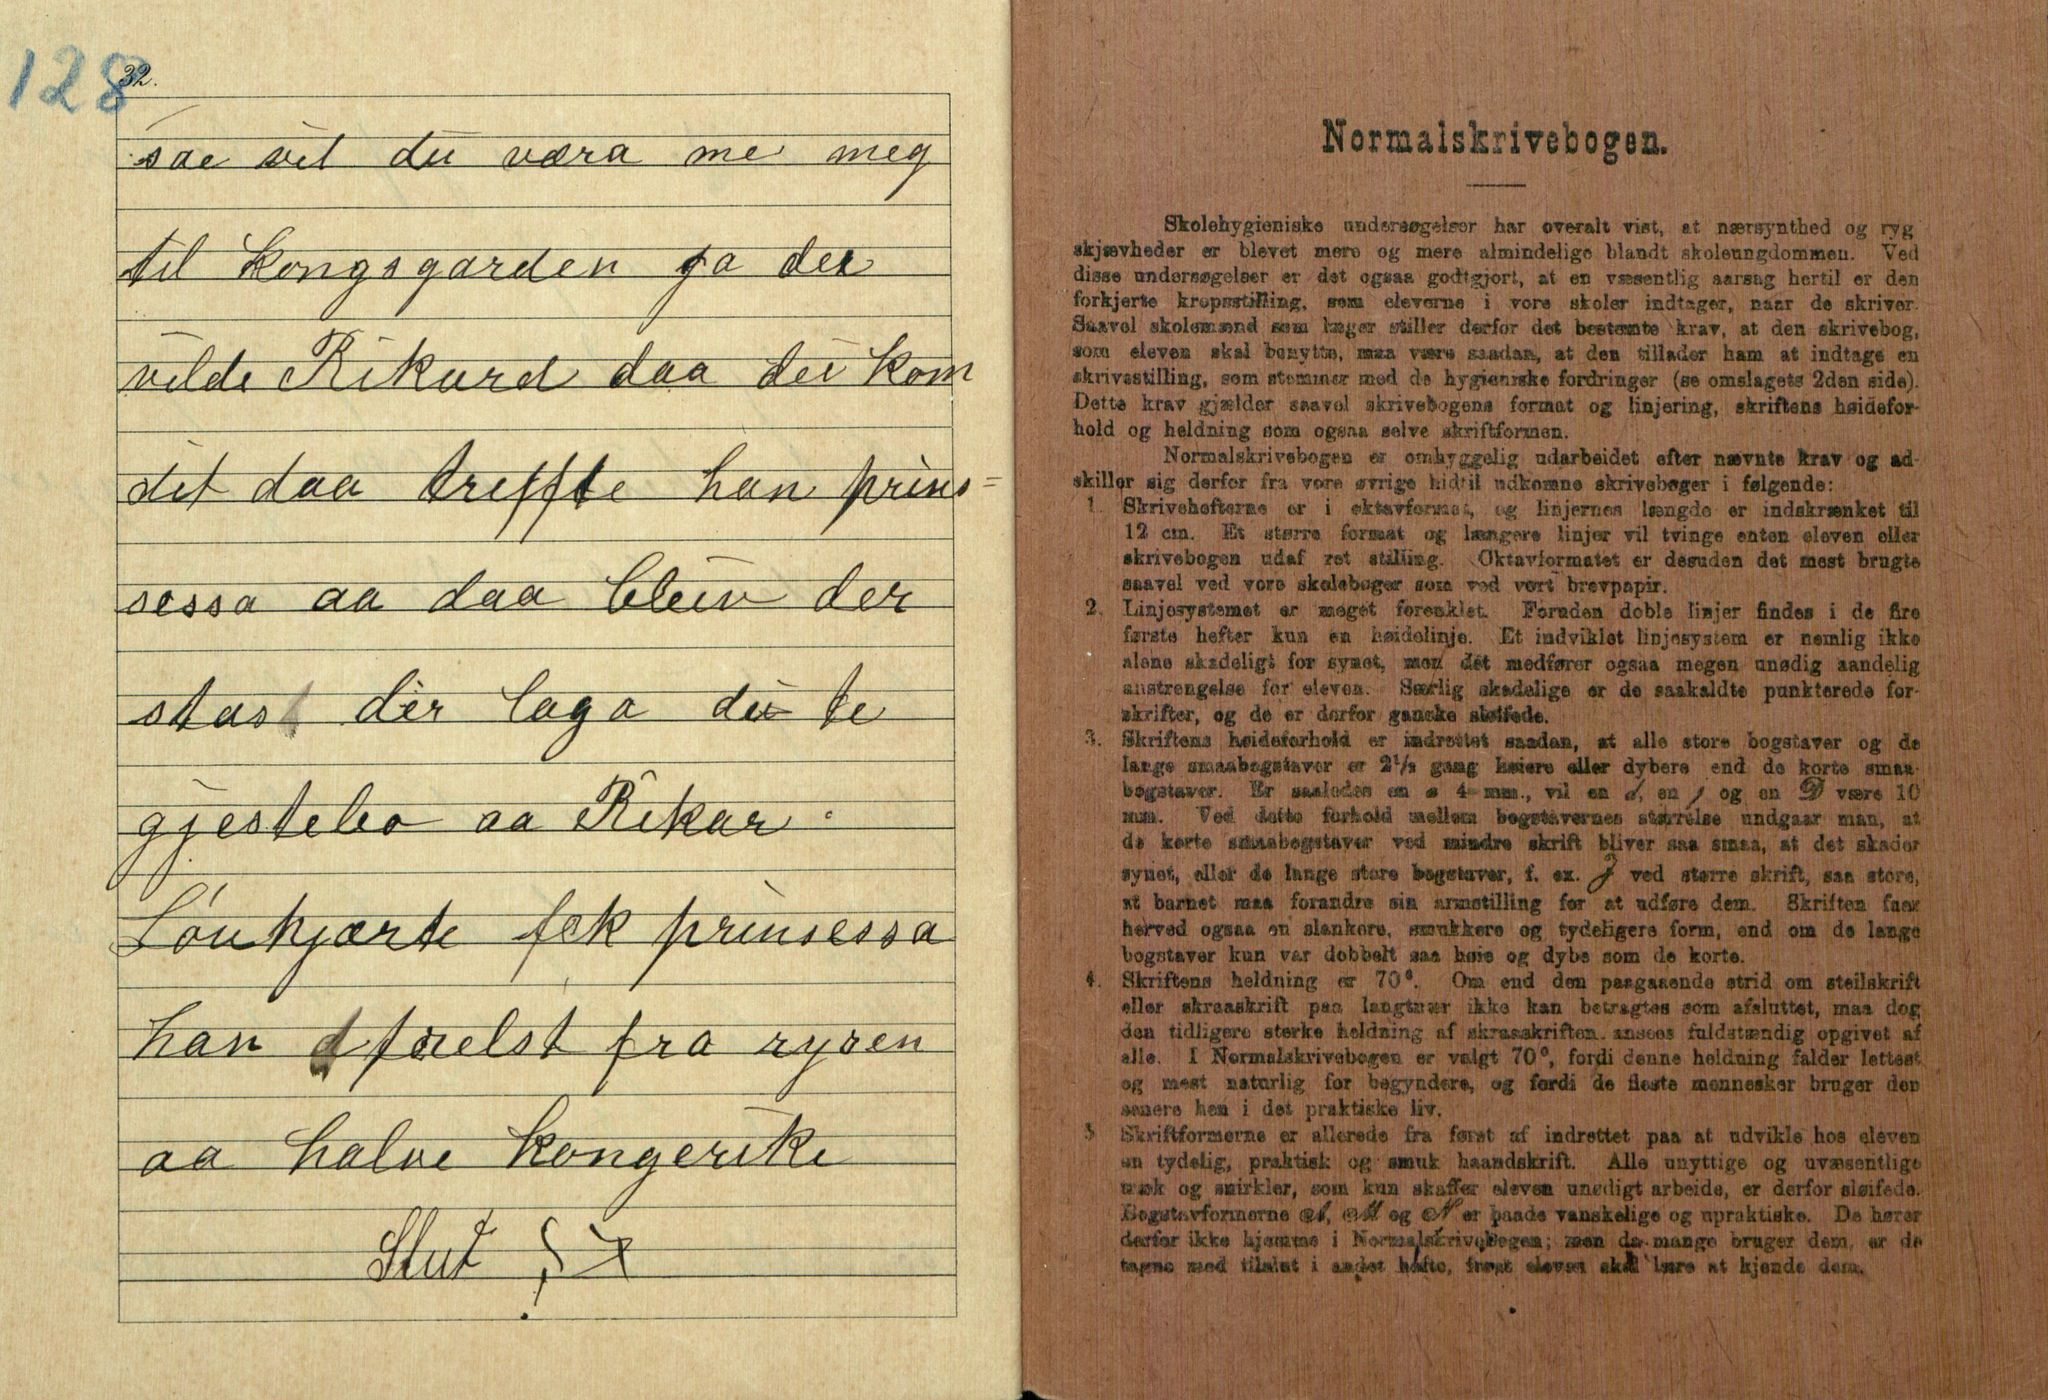 128
32.
sae vil du væra me meg
til kongsgarden ja dei
vilde Rikard daa dei kom
dit daa treffte han prins=
sessa aa daa bleiv der
stas der laga dei te
gjestebo aa Rikar
Løuhjærte fek prinsessa
han forelst fra ryren
aa halve kongerike
Slut
Normalskrivebogen.
Skolehygieniske undersøgelser har overalt vist, at nærsynthed og ryg
skjævheder er blevet mere og mere almindelige blandt skoleungdommen. Ved
disse undersøgelser er det ogsaa godtgjort, at en væsentlig aarsag hertil er den
forkjerte kropsstilling, som eleverne i vore skoler indtager, naar de skriver.
Saavel skolemænd som læger stiller derfor det bestemte krav, at den skrivebog,
som eleven skal benytte, maa være saadan, at den tillader ham at indtage en
skrivestilling, som stemmer med de hygieniske fordringer (se omslagets 2den side).
Dette krav gjælder saavel skrivebogens format og linjering, skriftens høidefor-
hold og heldning som ogsaa selve skriftformen.
Normalskrivebogen er omhyggelig udarbeidet efter nævnte krav og ad-
skiller sig derfor fra vore øvrige hidtil udkomne skrivebøger i følgende:
1. Skrivehefterne er i oktavformat, og linjernes længde er indskrænket til
12 cm. Et større format og længere linjer vil tvinge enten eleven eller
skrivebogen udaf ret stilling. Oktavformatet er desuden det mest brugte
saavel ved vore skolebøger som ved vort brevpapir.
2. Linjesystemet er meget forenklet. Foruden doble linjer findes i de fire
første hefter kun en høidelinje. Et indviklet linjesystem er nemlig ikke
alene skadeligt for synet, men det medfører ogsaa megen unødig aandelig
anstrengelse for eleven. Særlig skadelige er de saakaldte punkterede for-
skrifter, og de er derfor ganske sløifede.
3. Skriftens høideforhold er indrettet saadan, at alle store bogstaver og de
lange smaabogstaver er 2½ gang høiere eller dybere end de korte smaa-
bogstaver. Er saaledes en a 4 mm., vil en d, en j og en D være 10
mm. Ved dette forhold mellem bogstavernes størrelse undgaar man, at
de korte smaabogstaver ved mindre skrift bliver saa smaa, at det skader
synet, eller de lange store bogstaver, f. ex. J ved større skrift, saa store,
at barnet maa forandre sin armstilling for at udføre dem. Skriften faar
herved ogsaa en slankere, smukkere og tydeligere form, end om de lange
bogstaver kun var dobbelt saa høie og dybe som de korte.
4. Skriftens heldning er 70°. Om end den paagaaende strid om steilskrift
eller skraaskrift paa langtnær ikke kan betragtes som afsluttet, maa dog
den tidligere sterke heldning af skraaskriften ansees fuldstændig opgivet af
alle. I Normalskrivebogen er valgt 70°, fordi denne heldning falder lettest
og mest naturlig for begyndere, og fordi de fleste mennesker bruger den
senere hen i det praktiske liv.
5 Skriftformerne er allerede fra først af indrettet paa at udvikle hos eleven
en tydelig, praktisk og smuk haandskrift. Alle unyttige og uvæsentlige
træk og snirkler, som kun skaffer eleven unødigt arbeide, er derfor sløifede.
Bogstavformerne A, M og N er baade vanskelige og upraktiske. De hører
derfor ikke hjemme i Normalskrivebogen; men da mange bruger dem, er de
tagne med tilslut i andet hefte, forat eleven skal lære at kjende dem.